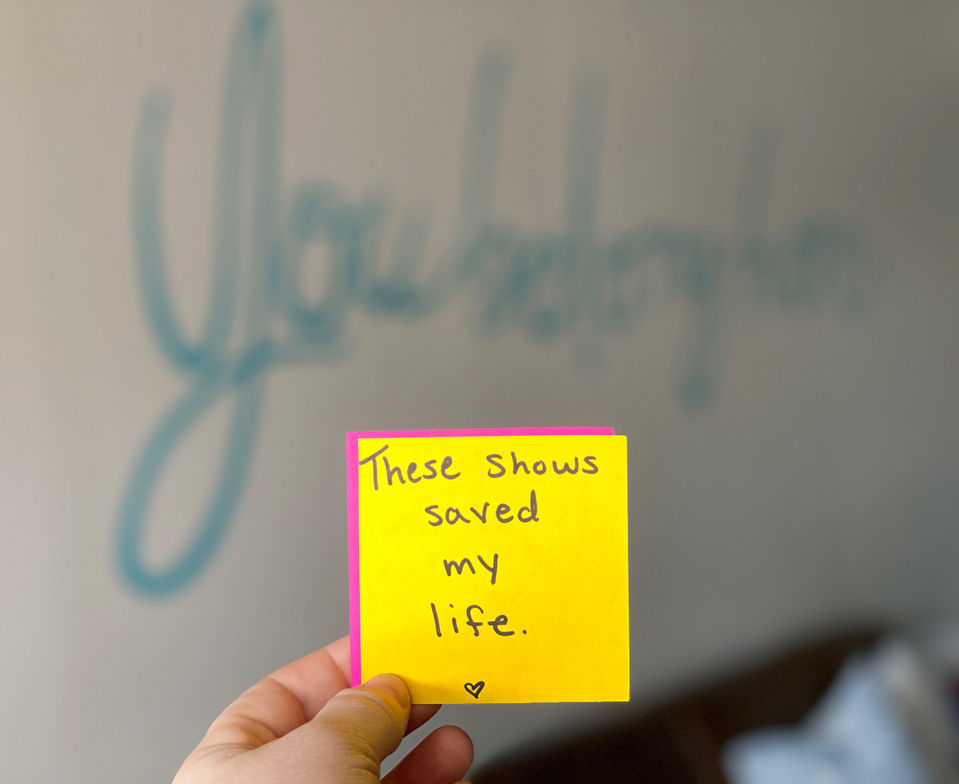 You belong here.
These shows
saved
my
life.